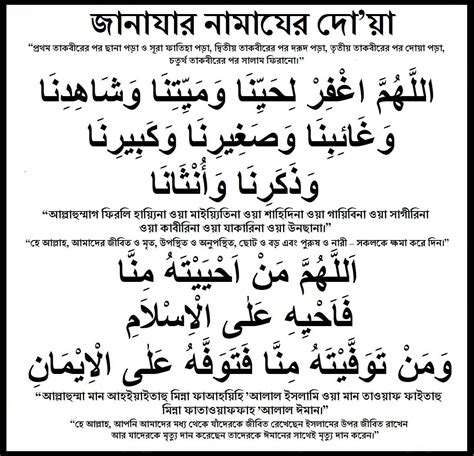 জানাযার নামাযের দো’য়া
“প্রথম তাকবীরের পর ছানা পড়া ও সূরা ফাতিহা পড়া, দ্বিতীয় তাকবীরের পর দরূদ পড়া, তৃতীয় তাকবীরের পর দোয়া পড়া,
চতুর্থ তাকবীরের পর সালাম ফিরানো।”
اللَّهُمَّ اغْفِرْ لِحَيِّنَا وَمَيِّتِنَا وَشَاهِدِنَا
وَغَائِبِنَا وَصَغِيرِنَا وَكَبِيرِنَا
وَذَكَرِنَا وَأُنْثَانَا
“আল্লাহুম্মাগ ফিরলি হায়্যিনা ওয়া মাইয়্যিতিনা ওয়া শাহিদিনা ওয়া গায়িবিনা ওয়া সাগীরিনা
ওয়া কাবীরিনা ওয়া যাকারিনা ওয়া উনছানা।”
“হে আল্লাহ, আমাদের জীবিত ও মৃত, উপস্থিত ও অনুপস্থিত, ছোট ও বড় এবং পুরুষ ও নারী – সকলকে ক্ষমা করে দিন।”
اَللَّهُمَّ مَنْ اَحْيَيْتَهُ مِنَّا
فَاَحْيِهِ عَلَى الْاِسْلَامِ
وَمَنْ تَوَفَّيْتَهُ مِنَّا فَتَوَفَّهُ عَلَى الْاِيْمَانِ
“আল্লাহুম্মা মান আহইয়াইতাহু মিন্না ফাআহয়িহি ‘আলাল ইসলামি ওয়া মান তাওয়াফ ফাইতাহু
মিন্না ফাতাওয়াফফাহ ‘আলাল ঈমান।”
“হে আল্লাহ, আপনি আমাদের মধ্য থেকে যাঁদেরকে জীবিত রেখেছেন ইসলামের উপর জীবিত রাখেন
আর যাদেরকে মৃত্যু দান করেছেন তাদেরকে ঈমানের সাথেই মৃত্যু দান করেন।”